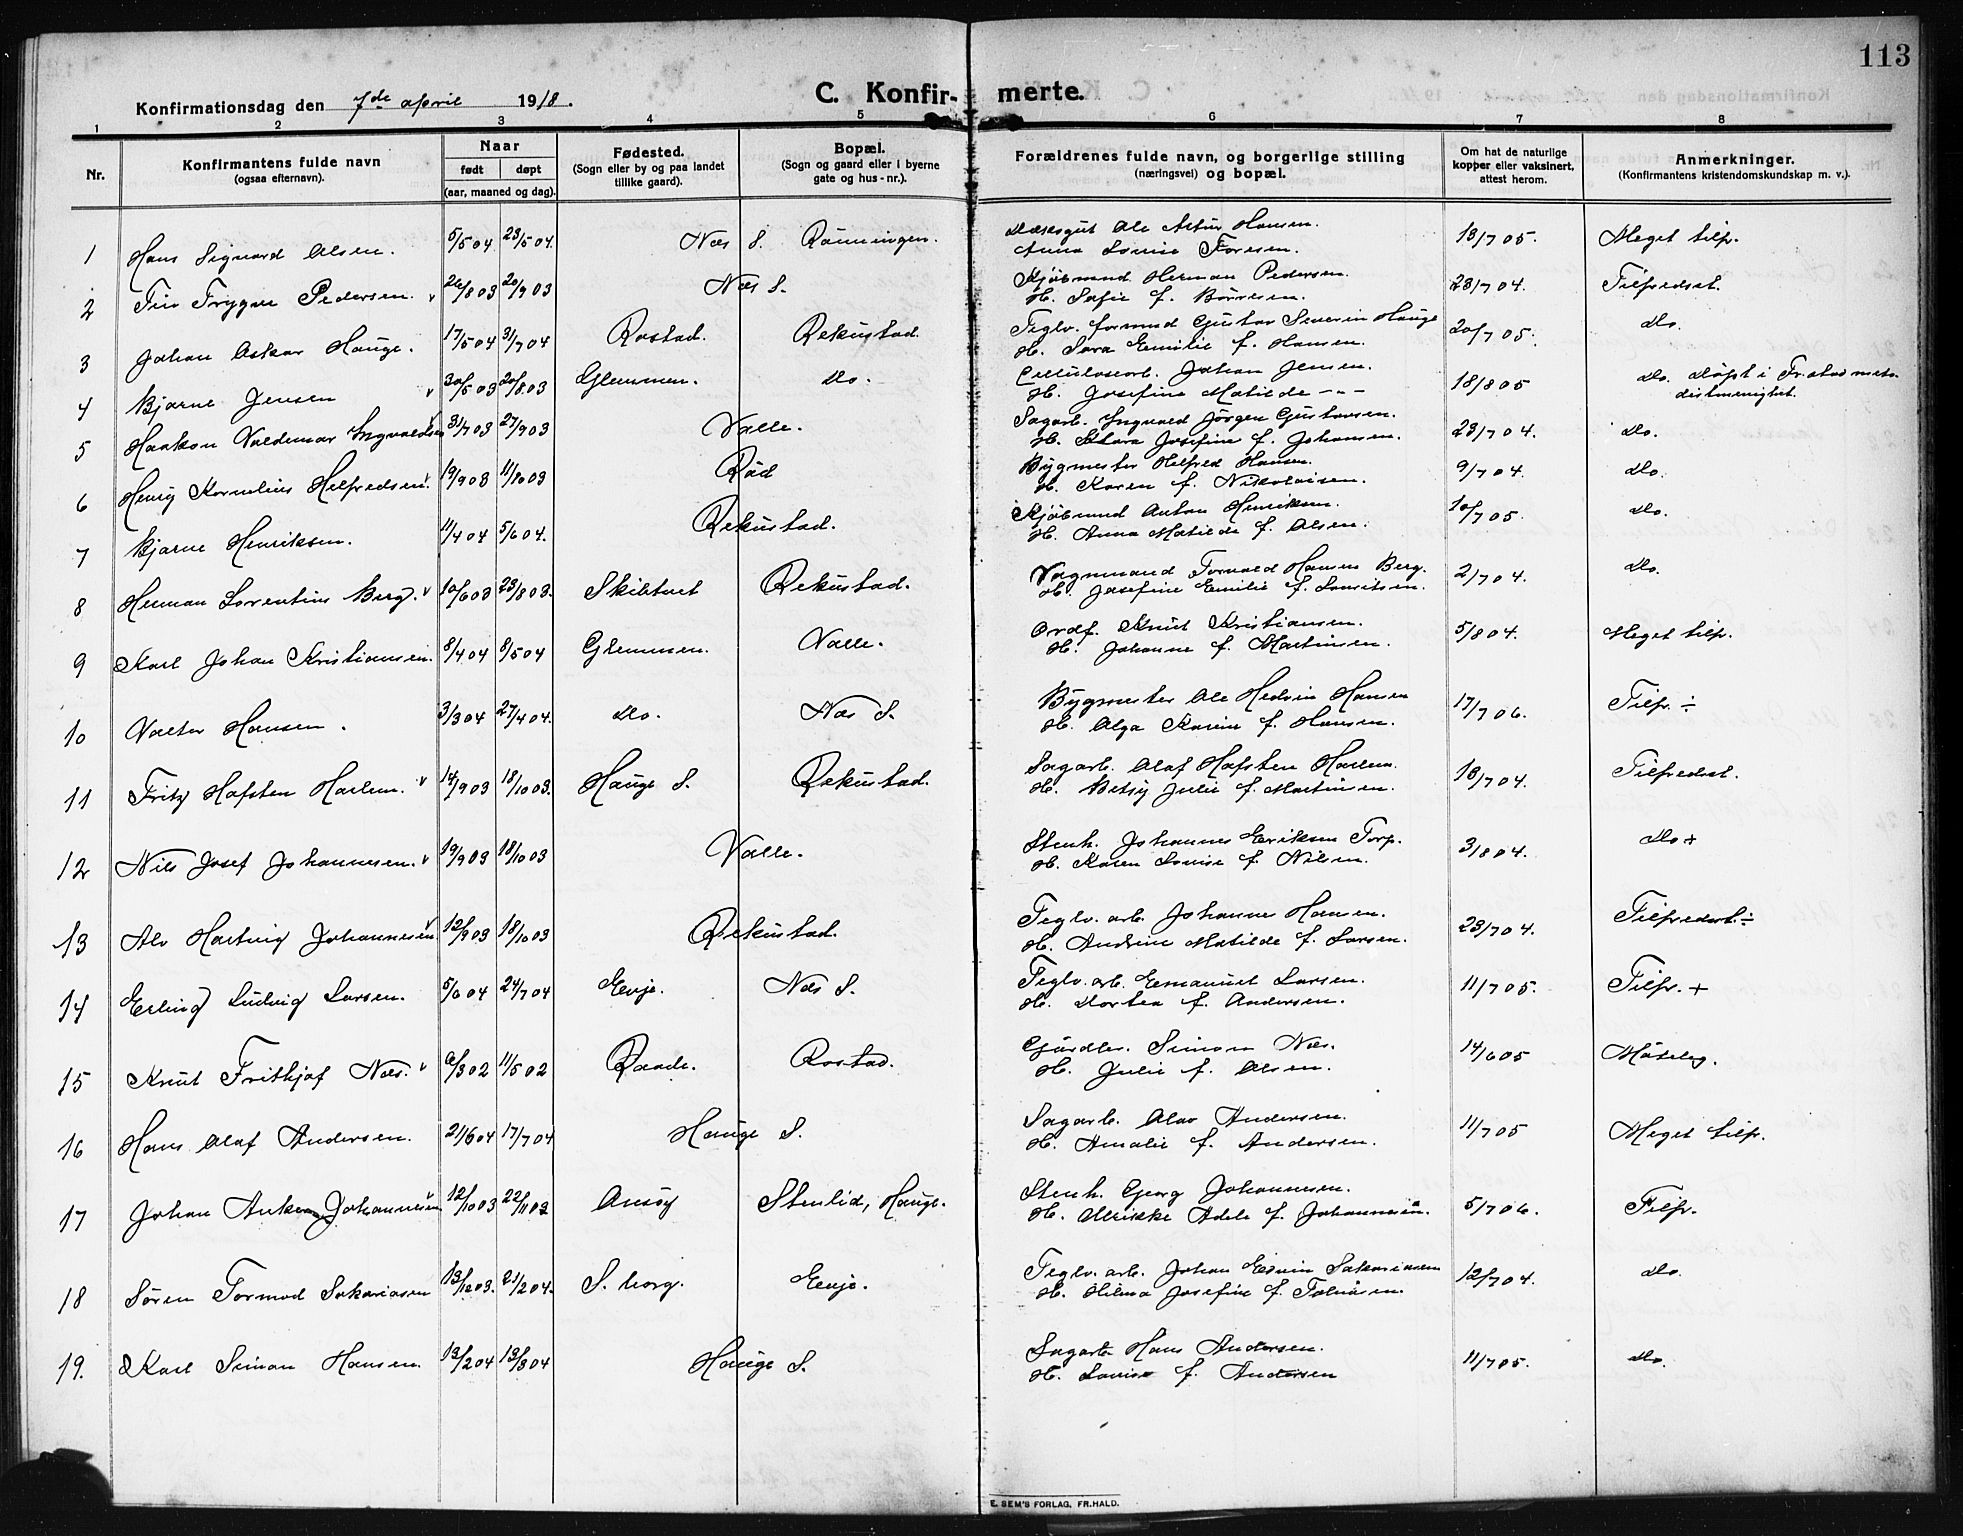 113
Konfirmationsdag den 7de april 1918.
C. Konfirmerte.
1 2 3 4 5 6 7 8
Nr.
Konfirmantens fulde navn
(ogsaa efternavn).
Naar
født døpt
(aar, maaned og dag).
Fødested.
(Sogn eller by og paa landet
tillike gaard).
Bopæl.
(Sogn og gaard eller i byerne
gate og hus - nr.).
Forældrenes fulde navn, og borgerlige stilling
(næringsvei) og bopæl.
Om hat de naturlige
kopper eller vaksinert,
attest herom.
Anmerkninger.
(Konfirmantens kristendomskundskap m. v.).
1 Hans Sigvard Olsen. 5/5 04 23/5 04. Næs S. Rønningen. Ole Artur Hansen. 18/7 05. Meget tilfr.
Anna Lovise
2 Finn Trygve Pedersen. v 26/8 03 20/9 03 Næs S. Kjøbmnd Herman Pedersen. 23/7 04. Tilfredsst.
H. Sofie f. Børresen.
3 Johan Oskar Hauge. 17/5 04 31/7 04 Rostad. Rekustad. Teglv. formnd Gustav Severin Hauge 20/7 05. Do.
H. Sara Emilie f. Hansen.
4 Bjarne Jensen v 30/5 03 20/8 03 Glemmen. Do. Celluloseorb. Johan Jensen. 18/8 05 Do. Døpt i Fr.stad meto-
H. Josefine Matilde - " - distmenighet.
5 Haakon Valdemar Ingvaldsen v 31/7 03 27/9 03 Valle. Sagarb. Ingvald Jørgen Gustavsen. 23/7 04. Do.
H. Klara Josefine f. Johansen.
6 Henry Kornelius Helfredsen. v 19/9 03 11/10 03 Rød Bygmester Helfred Hansen. 9/7 04. Do.
H. Karen f. Nikolaisen.
7 Bjarne Henriksen. 11/4 04 5/6 04. Rekustad. Kjøbmnd Anton Henriksen. 10/7 05. Do.
H. Anna Matilde f. Olsen.
8 Herman Lorentius Berg. v 10/6 03 23/8 03. Skibtvet Rekustad. Vognmand Torvald Hansen Berg. 2/7 04. Do.
H. Josefine Emilie f. Lauritsen.
9 Karl Johan Kristiansen. 8/4 04 8/5 04 Glemmen. Valle. Ordf. Knut Kristiansen. 5/8 04. Meget tilfr.
H. Johanne f. Martinsen.
10 Valter Hansen. 3/3 04 27/4 04. Do. Næs S. Bygmester Ole Hedvin Hansen 17/7 06. Tilfr. ÷
H. Olga Karin f. Hansen.
11 Fritz Hafsten Harlem. v 14/9 03 18/10 03. Hauge S. Rekustad. Sagarb. Olaf Hafsten Harlem. 18/7 04. Tilfredsst.
H. Betsy Julie f. Martinsen.
12 Nils Josef Johannesen. v 19/9 03 18/10 03 Valle. Stenh. Johannes Eriksen Torp. 3/8 04. Do +
H. Karen Lovise f. Nilsen.
13 Alv Hartvig Johannesen v 12/9 03 18/10 03 Rekustad. Teglv. arb. Johannes Hansen. 23/7 04. Tilfredsst. ÷
H. Andrine Matilde f. Larsen.
14 Erling Ludvig Larsen. 5/6 04 24/7 04 Evje. Næs S. Teglv. arb. Emanuel Larsen. 11/7 05. Tilfr. +
H. Dortea f. Andersen.
15 Knut Frithjof Næs. v 6/3 02 11/5 02 Raade. Rostad. Gårdbr. Simon Næs. 14/6 05 Måtelig.
H. Julie f. Olsen.
16 Hans Olaf Andersen. 21/6 04 17/7 04 Hauge S. Sagarb. Olav Andersen. 11/7 05 Meget tilfr.
H. Amalie f. Andersen.
17 Johan Anker Johannesen v 12/10 03 22/11 03 Onsøy Stenlid, Hauge. Stenh. Georg Johannesen. 5/7 06. Tilfr.
H. Ulrikke Adele f. Johannesen.
18 Søren Tormod Sakariasen 13/12 03. 21/2 04. S.borg. Evje. Teglv. arb. Johan Edvin Sakariasen 12/7 04. Do.
H. Hilma Josefine f. Tobiasen.
19. Karl Simon Hansen. 13/2 04 13/3 04 Hauge S. Sagarb. Hans Andersen. 11/7 05. Do.
H. Lovise f. Andersen
E. SEM'S FORLAG, FR.HALD.